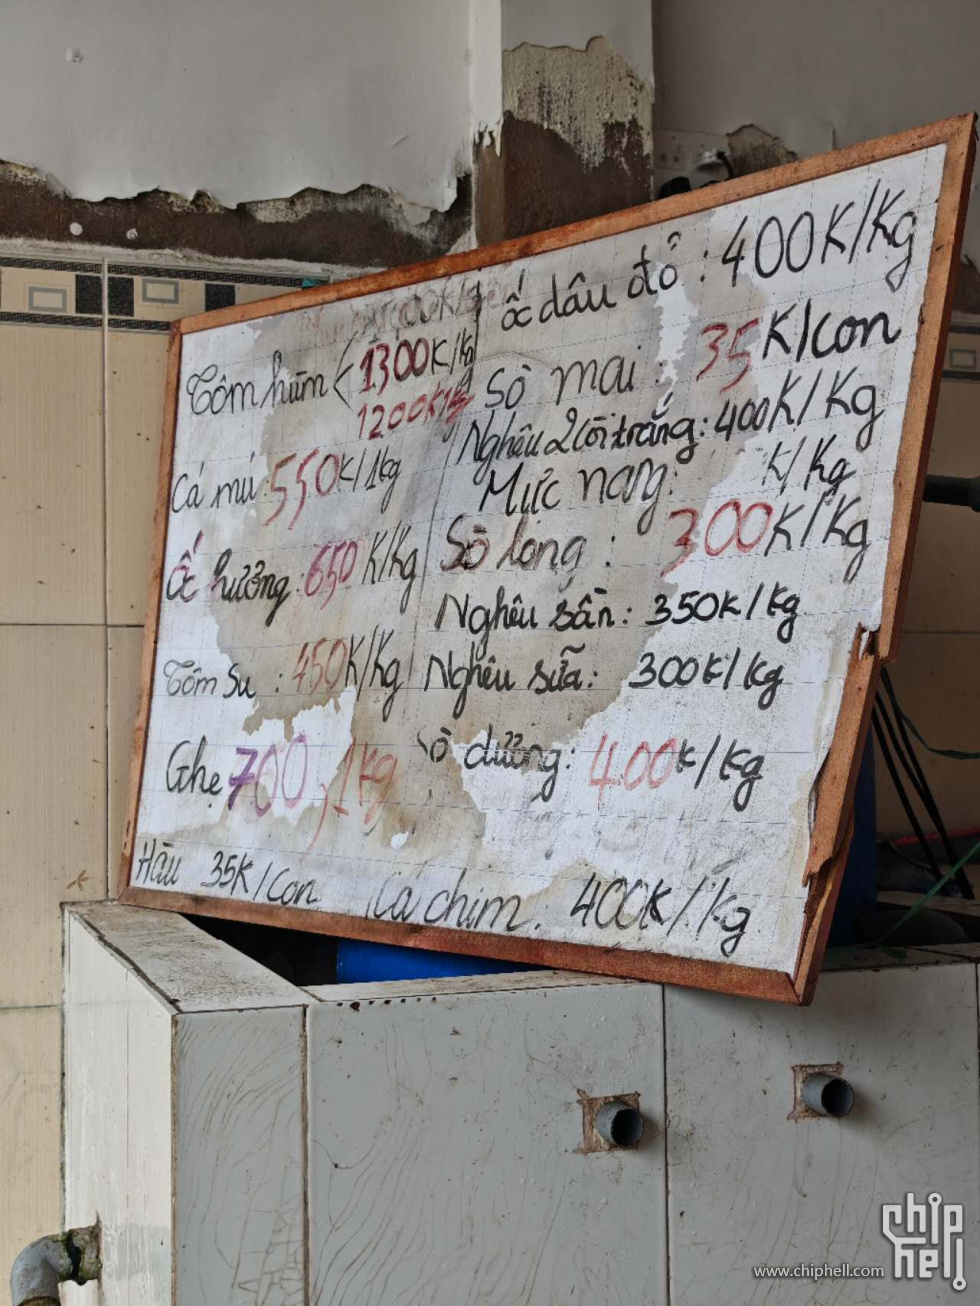 Tôm hùm < 1300K/kg
1200K/kg
Cá mú: 550K/1kg
Ốc hương: 650K/Kg
Tôm Sú : 450K/Kg
Ghẹ 700, 1kg
Hàu 35K/con
ốc dâu đỏ : 400K/Kg
Sò mai : 35K/con
Nghêu 2 lồi trắng: 400K/Kg
Mực nang: K/Kg
Sò lông : 300K/Kg
Nghêu sần: 350K/kg
Nghêu sữa: 300K/kg
ò dương: 400K/kg
Cá chim. 400K/kg
chip
hell
www.chiphell.com